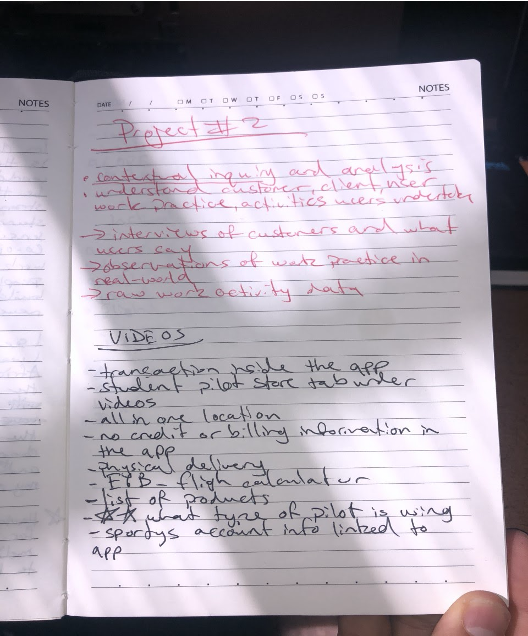 NOTES
NOTES
DATE / / □M □T □W □T □F □S □S
Project #2
• contextual inquiry and analysis
• understand customer, client, user
work practice, activities users undertake
→ interviews of customers and what
users say
→ observations of work practice in
real-world
→ raw work activity data
VIDEOS
- transaction inside the app
- student pilot store tab under
videos
- all in one location
- no credit or billing information in
the app
- physical delivery
- E6B - fligh calculator
- list of poducts
- ☆☆ what type of pilot is using
- sportys account info linked to
app